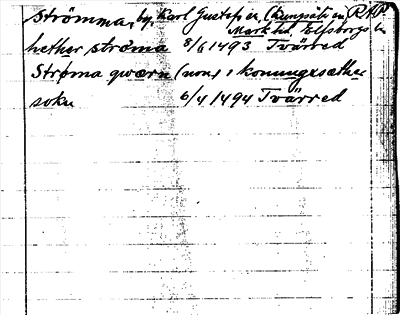 Strömma, by, Karl Gustafs sn, (Kungsäters sn, RAP
Mark hd, Elfsborgs l.
hether strøma 8/6 1493 Tvärred
Strøma qwærn (nom) i konungesæther
sokn 6/4 1494 Tvärred